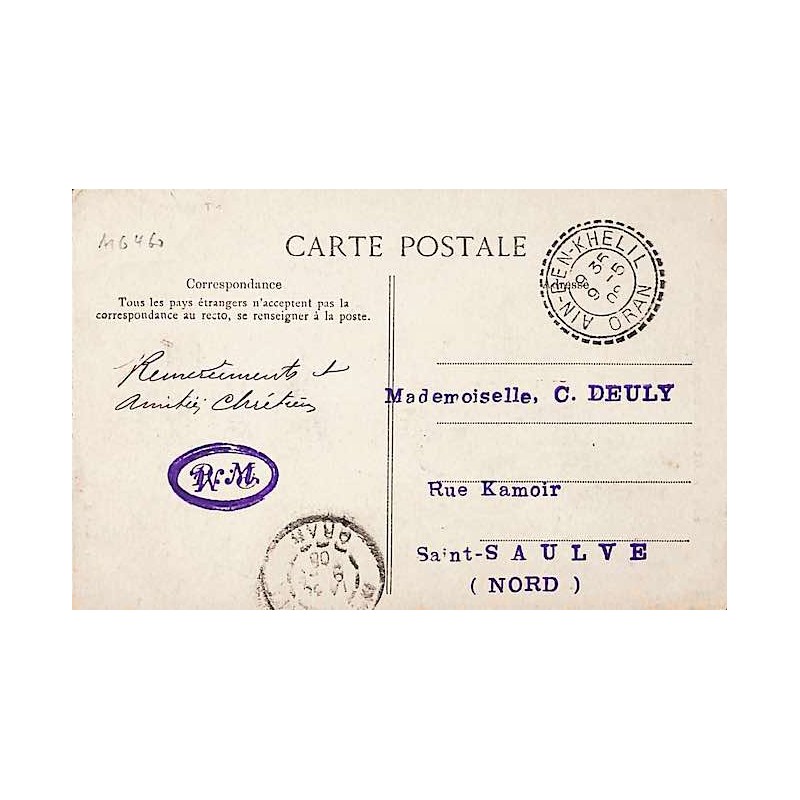 CARTE POSTALE
Correspondance
Tous les pays étrangers n'acceptent pas la
correspondance au recto, se renseigner à la poste.
Adresse
AIN-BEN-KHELIL
ORAN
Remerciements et
Amitiés Chrétiens
Mademoiselle, C. DEULY
Rue Kamoir
Saint-SAULVE
( NORD )
ORAN